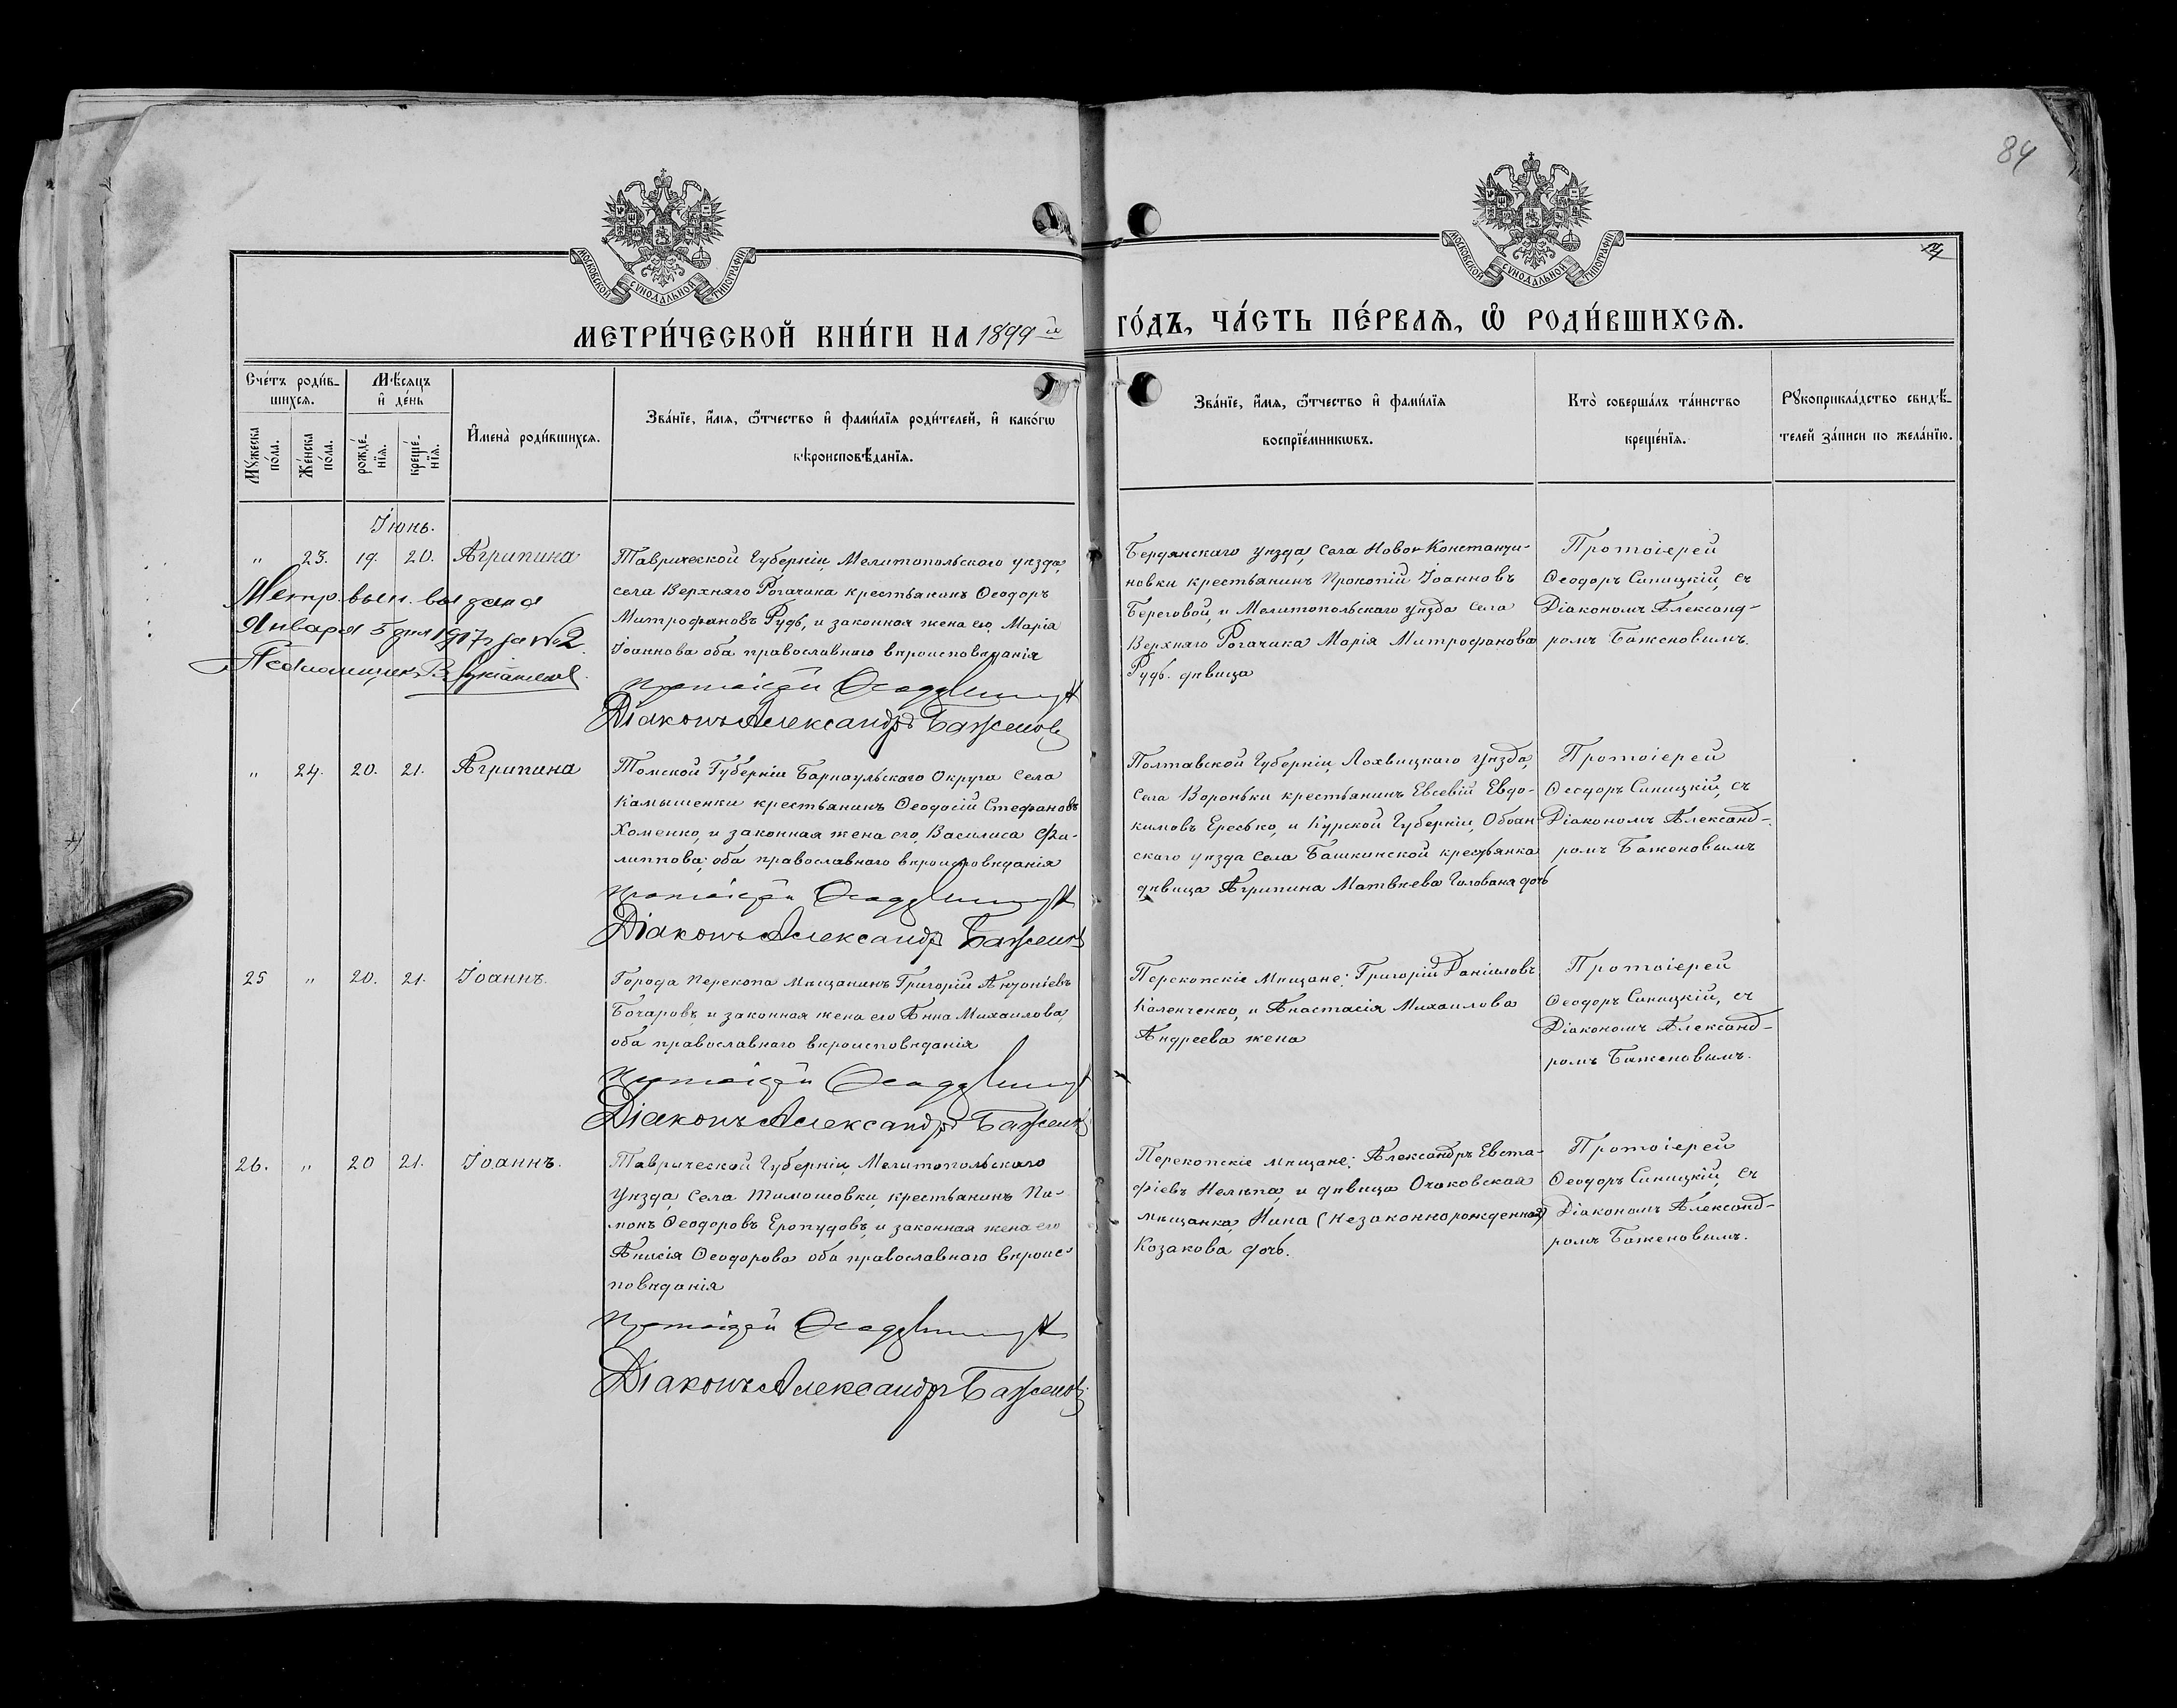 84
МОСКОВСКОЙ СѴНОДАЛЬНОЙ ТИПОГРАФІИ
МОСКОВСКОЙ СѴНОДАЛЬНОЙ ТИПОГРАФІИ
МЕТРИ́ЧЕСКОЙ КНИ́ГИ НА 1899й ГО́ДЪ, ЧА́СТЬ ПЕ́РВАѦ, Ѿ РОДИ́ВШИХСѦ.
Сче́тъ роди́в-
шихсѧ.
Мѣ́сяцъ
и҆ де́нь
Мꙋ́жеска
по́ла.
Же́нска
по́ла.
рожде́-
нїѧ.
креще́-
нїѧ.
И҆мена̀ роди́вшихсѧ.
Зва́нїе, и҆́мѧ, ѻ҆́тчество и҆ фами́лїѧ роди́телей, и҆ како́гѡ
вѣроисповѣ́данїѧ.
Зва́нїе, и҆́мѧ, ѻ҆́тчество и҆ фами́лїѧ
воспрїе́мникѡвъ.
Кто̀ соверша́лъ та́инство
креще́нїѧ.
Рꙋкоприкла́дство свидѣ́-
телей за́писи по жела́нїю.
Іюнь.
" 23. 19. 20. Агрипина
Метр. вып. выдана
Января 5 дня 1917 г за № 2
Псаломщик В.
Таврической Губерніи, Мелитопольского уѣзда,
села Верхняго Рогачика крестьянинъ Ѳеодоръ
Митрофановъ Рудь, и законная жена его, Марія
Іоаннова оба православнаго вѣроисповѣданія
Протоіерей Ѳеодоръ Синицкій
Діаконъ Александръ Баженовъ
Бердянскаго уѣзда, села Ново-Константи-
новки крестьянинъ Прокопій Іоанновъ
Береговой, и Мелитопольскаго уѣзда села
Верхняго Рогачика Марія Митрофанова
Рудь. дѣвица
Протоіерей
Ѳеодоръ Синицкій, съ
Діакономъ Александ-
ромъ Баженовымъ.
" 24. 20. 21. Агрипина
Томской Губерніи Барнаульскаго Округа села
Камышенки крестьянинъ Ѳеодосій Стефановъ
Хоменко, и законная жена его, Василиса Фи-
липпова; оба православнаго вѣроисповѣданія
Протоіерей Ѳеодоръ Синицкій
Діаконъ Александръ Баженовъ
Полтавской Губерніи, Лохвицкаго Уѣзда,
села Вороньки крестьянинъ Евсевій Евдо-
кимовъ Ересько, и Курской Губерніи, Обоян-
скаго уѣзда села Башкинской крестьянка
дѣвица Агрипина Матвѣева Голобана дочь
Протоіерей
Ѳеодоръ Синицкій, съ
Діакономъ Александ-
ромъ Баженовымъ
25 " 20. 21. Іоаннъ.
Города Перекопа мѣщанинъ Григорій Антоніевъ
Бочаровъ, и законная жена его Анна Михаилова,
оба православнаго вѣроисповѣданія
Протоіерей Ѳеодоръ Синицкій
Діаконъ Александръ Баженовъ
Перекопскіе мѣщане: Григорій Даніиловъ
Каленченко, и Анастасія Михаилова
Андреева жена
Протоіерей
Ѳеодоръ Синицкій, съ
Діакономъ Александ-
ромъ Баженовымъ.
26. " 20 21. Іоаннъ.
Таврической Губерніи, Мелитопольскаго
Уѣзда, села Тимошовки, крестьянинъ Пи-
монъ Ѳеодоровъ Еропудовъ, и законная жена его
Анисія Ѳеодорова оба православнаго вѣроис-
повѣданія
Протоіерей Ѳеодоръ Синицкій
Діаконъ Александръ Баженовъ
Перекопскіе мѣщане: Александръ Евста-
фіевъ Нелѣпа, и дѣвица Очаковская
мѣщанка, Нина (незаконнорожденная)
Козакова дочь.
Протоіерей
Ѳеодоръ Синицкій, съ
Діакономъ Александ-
ромъ Баженовымъ.